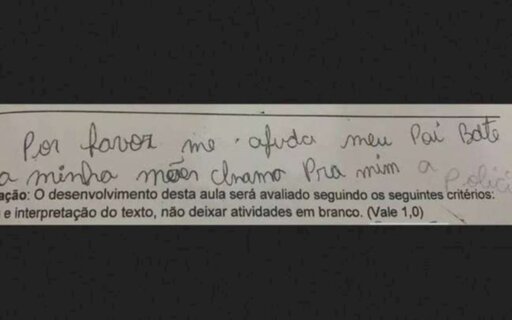 Por favor me ajuda meu Pai Bate
a minha mães chnamo Pra mim a Polici
ação: O desenvolvimento desta aula será avaliado seguindo os seguintes critérios:
e interpretação do texto, não deixar atividades em branco. (Vale 1,0)